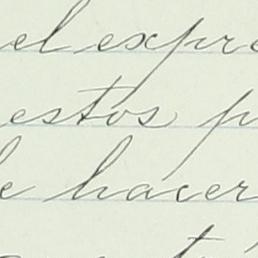 el expre
estos p
e hacer